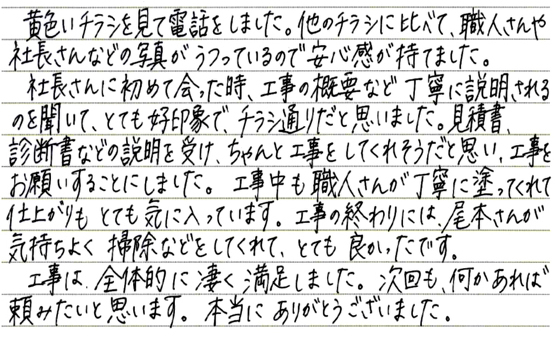 黄色いチラシを見て電話をしました。他のチラシに比べて、職人さんや
社長さんなどの写真がうつっているので安心感が持てました。
社長さんに初めて会った時、工事の概要など丁寧に説明される
のを聞いて、とても好印象で、チラシ通りだと思いました。見積書、
診断書などの説明を受け、ちゃんと工事をしてくれそうだと思い、工事を
お願いすることにしました。工事中も職人さんが丁寧に塗ってくれて
仕上がりもとても気に入っています。工事の終わりには、尾本さんが
気持ちよく掃除などをしてくれて、とても良かったです。
工事は、全体的に凄く満足しました。次回も、何かあれば
頼みたいと思います。本当にありがとうございました。